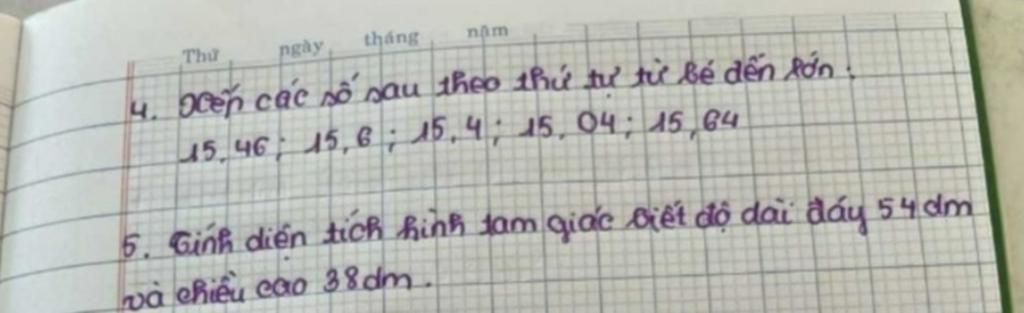 Thứ ngày tháng năm
4. Xếp các số sau theo thứ tự từ bé đến lớn:
15,46; 15,6; 15,4; 15,04; 15,64
5. Tính diện tích hình tam giác biết độ dài đáy 54dm
và chiều cao 38dm.